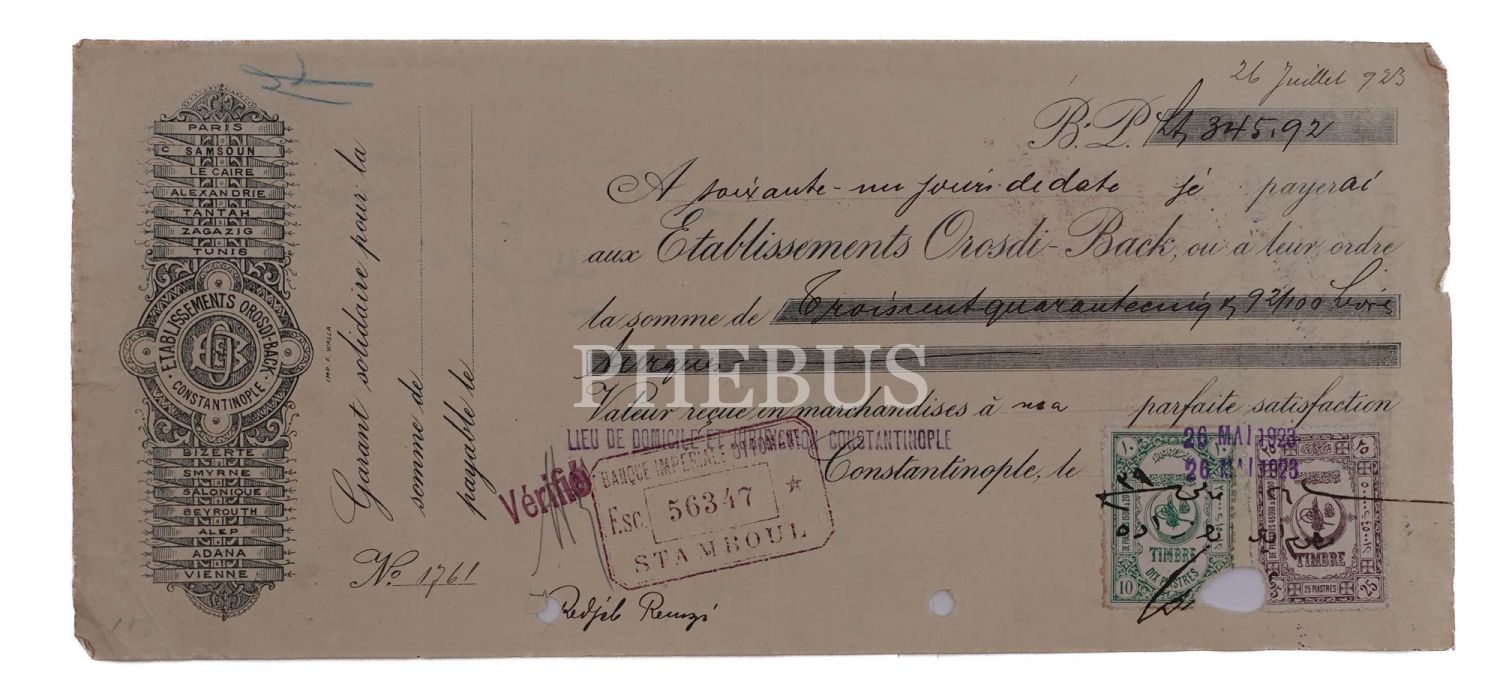 PARIS
C SAMSOUN
LE CAIRE
ALEXANDRIE
TANTAH
ZAGAZIG
TUNIS
ETABLISSEMENTS OROSDI-BACK
CONSTANTINOPLE
BIZERTE
SMYRNE
SALONIQUE
BEYROUTH
ALEP
ADANA
VIENNE
IMP. F. WALLA
Garant solidaire pour la
somme de
payable le
No 1761
26 Juillet 923
B.P. Lt 345.92
A soixante-un jours de date je payerai
aux Etablissements Orosdi-Back, ou à leur ordre
la somme de Troiscentquarantecinq & 92/100 Livres
Turques
PHEBUS
Valeur reçue en marchandises à ma parfaite satisfaction
LIEU DE DOMICILE ET CONSTANTINOPLE
Constantinople, le
26 MAI 1923
26 MAI 1923
Vérifié
BANQUE IMPÉRIALE OTTOMANE
Esc. 56347
STAMBOUL
Redjeb Remzi
TIMBRE
10 DIX PIASTRES
TIMBRE
25 PIASTRES 25